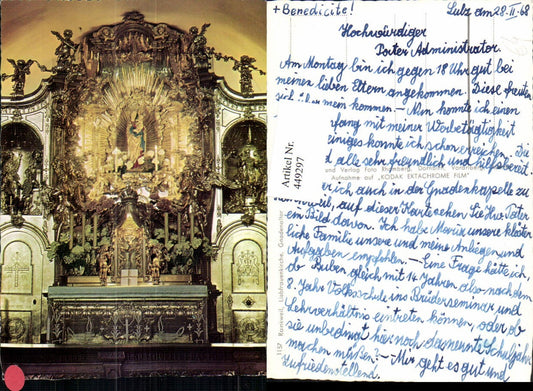 + Benedicite!
Sulz am 28.II.68
Hochwürdiger
Pater Administrator
Am Montag bin ich gegen 18 Uhr gut bei
meinen lieben Eltern angekommen. Diese freuten
sich mein kommen. – Nun konnte ich einen
mit meiner Werbetätigkeit
einiges konnte ich schon erreichen. Die
alle sehr freundlich und hilfsbereit
ich auch in der Gnadenkapelle zu
auf dieser Karte sehen Sie Hw. Pater
ein Bild davon. Ich habe Maria unsere klöster
liche Familie unsere und meine Anliegen und
Aufgaben empfohlen. – Eine Frage hätte ich,
ob Buben gleich mit 14 Jahren also nach dem
8. Jahr Volksschule ins Brüderseminar und
Lehrverhältnis eintreten können, oder ob
sie unbedingt hier noch das neunte Schuljahr
machen müßen? – Mir geht es gut und
zufriedenstellend.
Artikel Nr.
449297
und Verlag Foto Rhomberg, Dornbirn
Aufnahme auf „KODAK EKTACHROME FILM"
1157 Rankweil, Liebfrauenkirche, Gnadenaltar